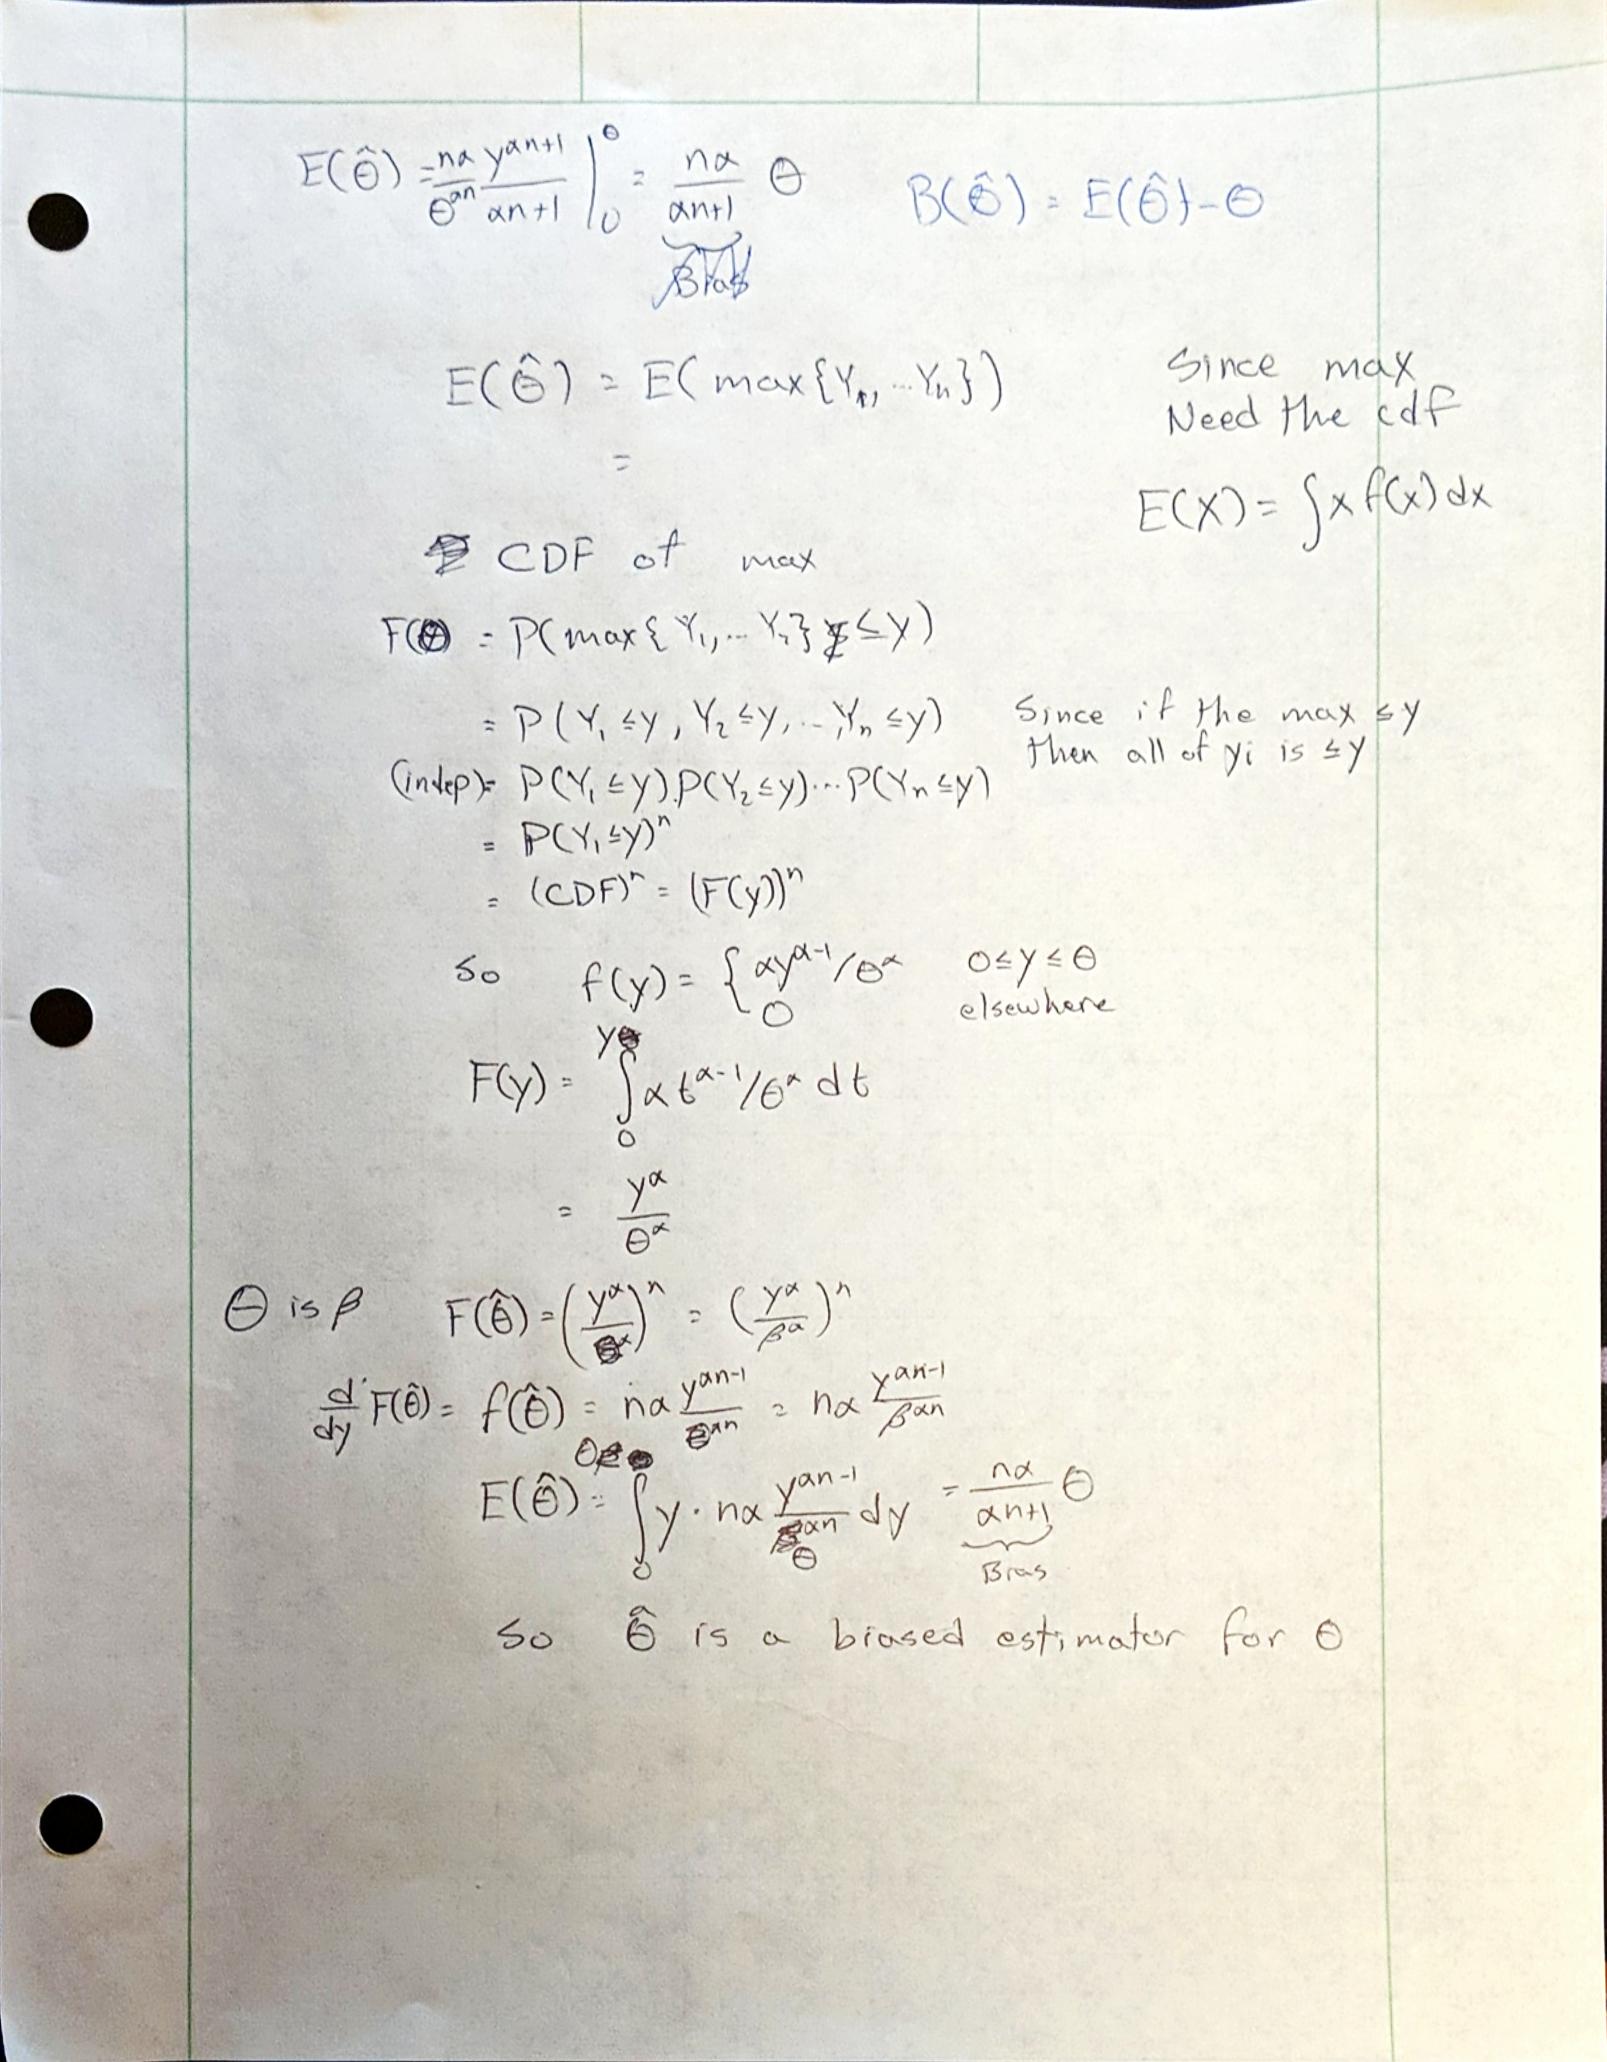 E(θ̂) = nα/θ^αn y^αn+1/αn+1 |₀^θ = nα/αn+1 θ B(θ̂) = E(θ̂) - θ
Bias
E(θ̂) = E(max{Y₁, ...Yₙ}) Since max
Need the cdf
=
E(X) = ∫x f(x) dx
CDF of max
F(θ) = P(max{Y₁,... Yₙ} ≤ y)
= P(Y₁ ≤ y, Y₂ ≤ y, ..., Yₙ ≤ y) Since if the max ≤ y
then all of yi is ≤ y
(indep) = P(Y₁ ≤ y).P(Y₂ ≤ y)...P(Yₙ ≤ y)
= P(Y₁ ≤ y)ⁿ
= (CDF)ⁿ = (F(y))ⁿ
So f(y) = { αy^α-1/θ^α 0 ≤ y ≤ θ
0 elsewhere
F(y) = ∫₀^y α t^α-1/θ^α dt
= y^α/θ^α
θ is β F(θ̂) = (y^α/θ^α)ⁿ = (y^α/β^α)ⁿ
d/dy F(θ̂) = f(θ̂) = nα y^αn-1/θ^αn = nα y^αn-1/β^αn
E(θ̂) = ∫₀^θ y · nα y^αn-1/θ^αn dy = nα/αn+1 θ
Bias
So θ̂ is a biased estimator for θ